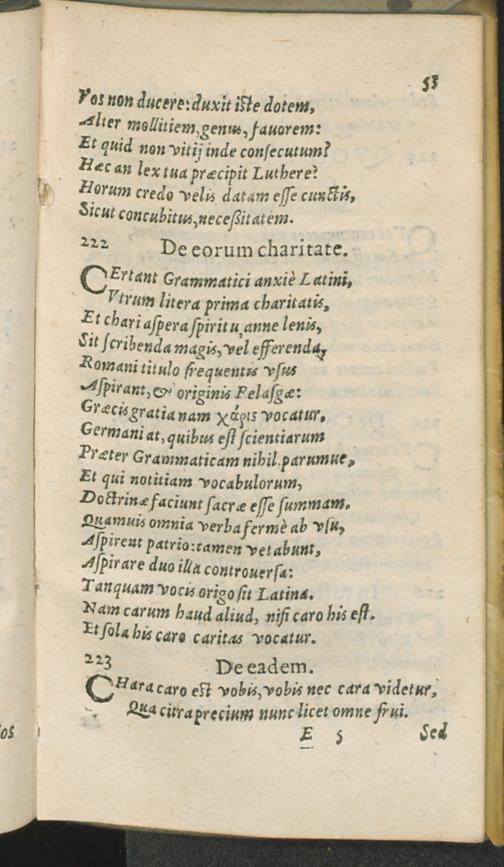 53
Vos non ducere: duxit iste dotem,
Alter mollitiem, genus, fauorem:
Et quid non vitij inde consecutum?
Hæc an lex tua præcipit Luthere?
Horum credo velis datam esse cunctis,
Sicut concubitus, neceßitatem.
222 De eorum charitate.
CErtant Grammatici anxiè Latini,
Vtrum litera prima charitatis,
Et chari aspera spiritu, anne lenis,
Sit scribenda magis, vel efferenda,
Romani titulo frequentis vsus
Aspirant, & originis Pelasgæ:
Græcis gratia nam χάρις vocatur.
Germani at, quibus est scientiarum
Præter Grammaticam nihil parumue,
Et qui notitiam vocabulorum,
Doctrinæ faciunt sacræ esse summam.
Quamuis omnia verba fermè ab vsu,
Aspirent patrio: tamen vetabunt,
Aspirare duo illa controuersa:
Tanquam vocis origo sit Latina.
Nam carum haud aliud, nisi caro his est.
Et sola his caro caritas vocatur.
223 De eadem.
CHara caro est vobis, vobis nec cara videtur,
Qua citra precium nunc licet omne frui.
E 5 Sed
os